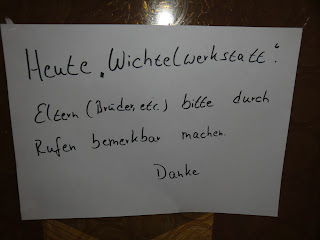 Heute „Wichtelwerkstatt“.
Eltern (Brüder, etc.) bitte durch
Rufen bemerkbar machen.
Danke